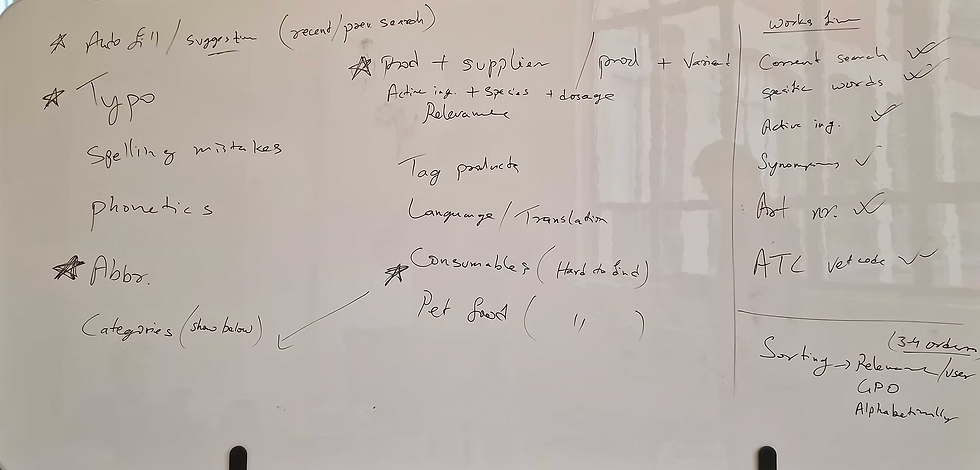 Auto fill / suggestion (recent / prev search)
Typo
Spelling mistakes
phonetics
Abbr.
Categories (show below)
Prod + supplier / prod + Variant
Active ing. + Species + dosage
Relevance
Tag products
Language / Translation
Consumables (Hard to find)
Pet food ( " )
Works fine
Current search
specific words
Active ing.
Synonyms
Art nr.
ATC vet code
(3-4 orders
Sorting → Relevance / user
GPO
Alphabetically